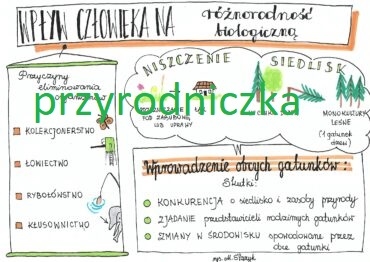 WPŁYW CZŁOWIEKA NA
różnorodność
biologiczną
Przyczyny
eliminowania
organizmów
KOLEKCJONERSTWO
ŁOWIECTWO
RYBOŁÓWSTWO
KŁUSOWNICTWO
NISZCZENIE SIEDLISK
przyrodniczka
POD ZABUDOWĘ
LUB UPRAWY
MONOKULTURY
LEŚNE
(1 gatunek
drzew)
Wprowadzenie obcych gatunków:
Skutki:
KONKURENCJA o siedlisko i zasoby przyrody
ZJADANIE przedstawicieli rodzimych gatunków
ZMIANY W ŚRODOWISKU spowodowane przez
obce gatunki